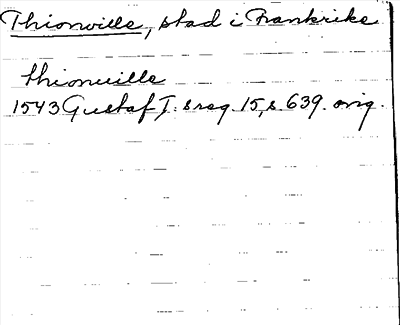 Thionville, stad i Frankrike
thionuille
1543 Gustaf I:s reg. 15, s 639. orig.